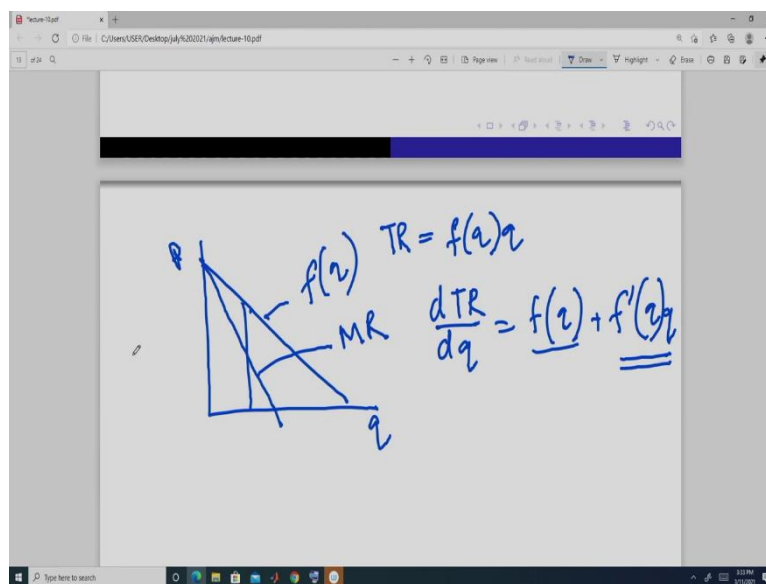 *lecture-10.pdf
File | C:/Users/USER/Desktop/july%202021/ajm/lecture-10.pdf
13 of 24
Page view | Read aloud | Draw | Highlight | Erase
P
f(q)
TR = f(q)q
MR
dTR/dq = f(q) + f'(q)q
q
Type here to search
3:53 PM
3/11/2021